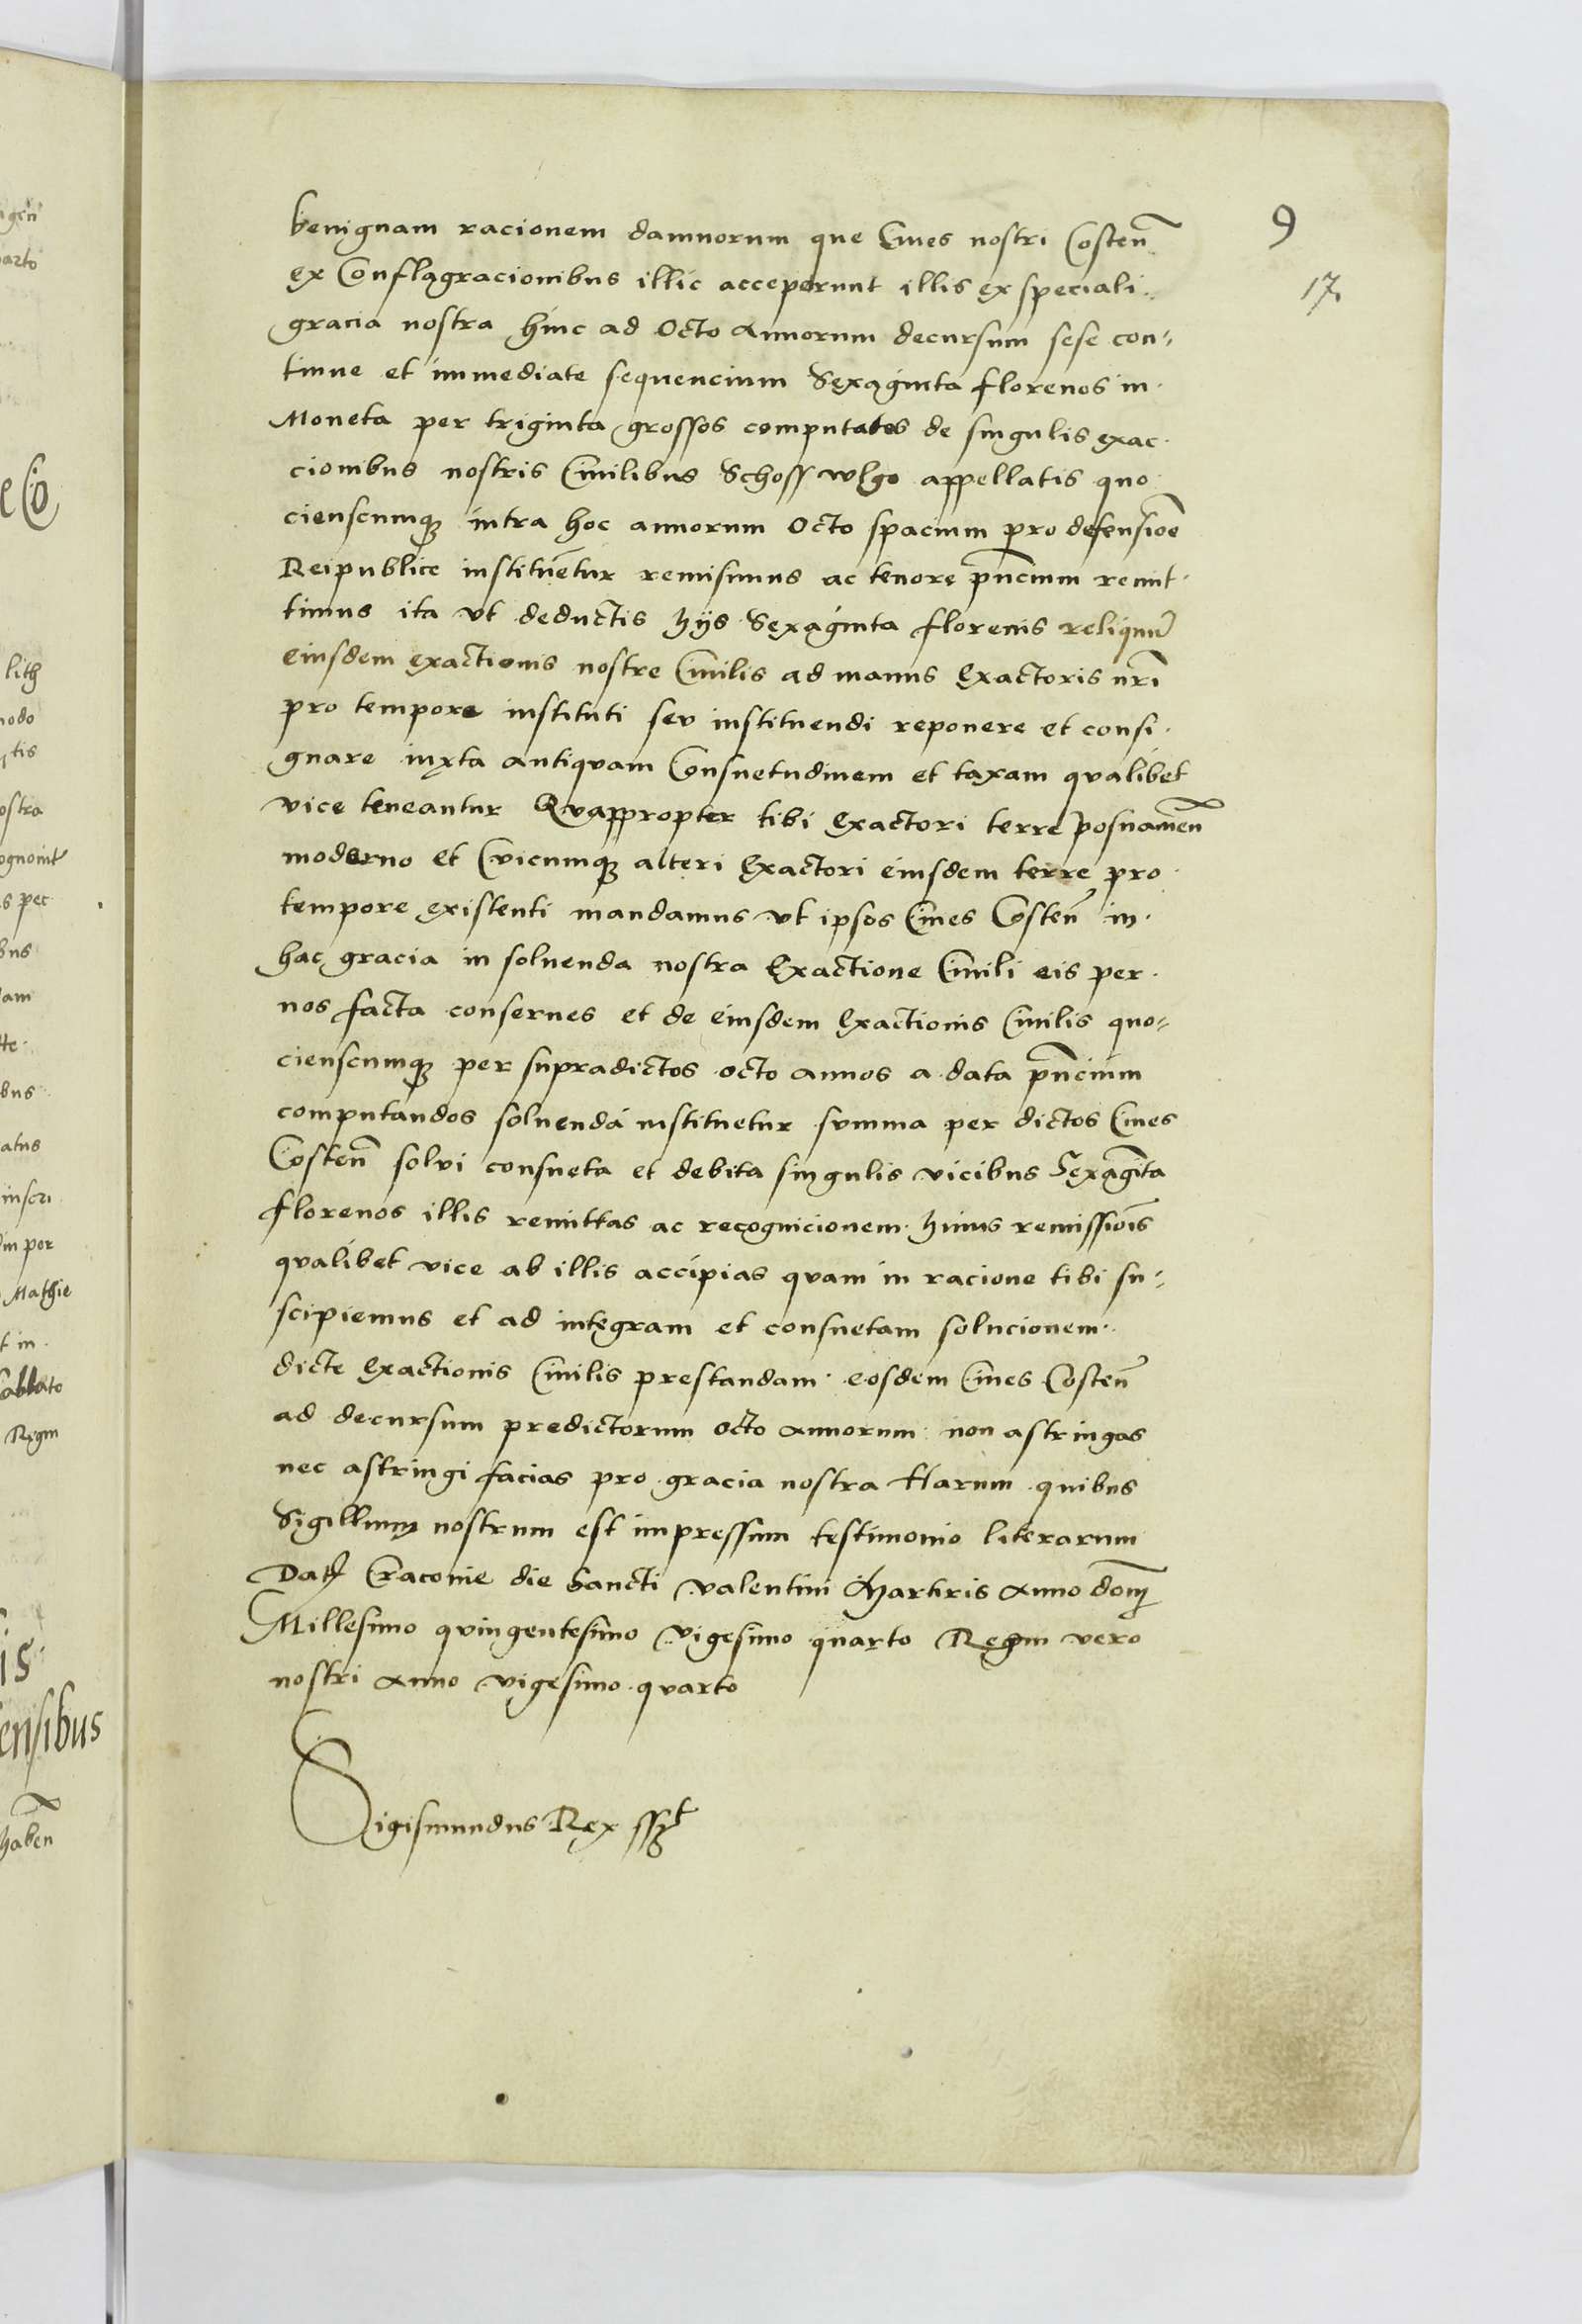 benignam racionem damnorum que Ciues nostri Costen̄
ex Conflagracionibus illic acceperunt illis ex speciali
gracia nostra hinc ad Octo Annorum decursum sese con-
tinue et immediate sequencium Sexaginta florenos in
Moneta per triginta grossos computatos de singulis exac
cionibus nostris Ciuilibus Schoss wlgo appellatis quo
cienscumqȝ intra hoc annorum Octo spacium pro defensioē
Reipublice instituētur remisimus ac tenore pn̄cium remit
timus ita vt deductis hijs Sexaginta florenis reliquū
eiusdem exactionis nostre Ciuilis ad manus Exactoris nr̄i
pro tempore instituti seu instituendi reponere et consi
gnare iuxta antiquam Consuetudinem et taxam qualibet
vice teneantur Quappropter tibi Exactori terre Posnamen̄
moderno et Cuicumqȝ alteri Exactori eiusdem terre pro
tempore existenti mandamus vt ipsos Ciues Costen̄ in
hac gracia in soluenda nostra Exactione Ciuili eis per
nos facta conserues et de eiusdem Exactionis Ciuilis quo-
cienscumqȝ per supradictos octo annos a data pn̄cium
computandos soluenda instituetur summa per dictos Ciues
Costen̄ solui consueta et debita singulis vicibus Sexagīta
florenos illis remittas ac recognicionem huius remissiōis
qualibet vice ab illis accipias quam in racione tibi su-
scipiemus et ad integram et consuetam solucionem
dicte Exactionis Ciuilis prestandam eosdem Ciues Costen̄
ad decursum predictorum octo annorum non astringas
nec astringi facias pro gracia nostra Harum quibus
Sigillum nostrum est impressum testimonio literarum
Dat Cracouie die Sancti Valentini Martiris Anno dom̄
Millesimo quingentesimo vigesimo quarto Regni vero
nostri Anno vigesimo quarto
Sigismundus Rex sst
9
17